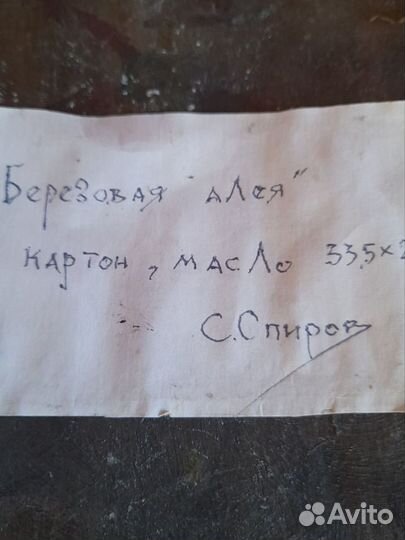 Березовая алея"
картон, масло 33,5×2
С.Спиров
Avito